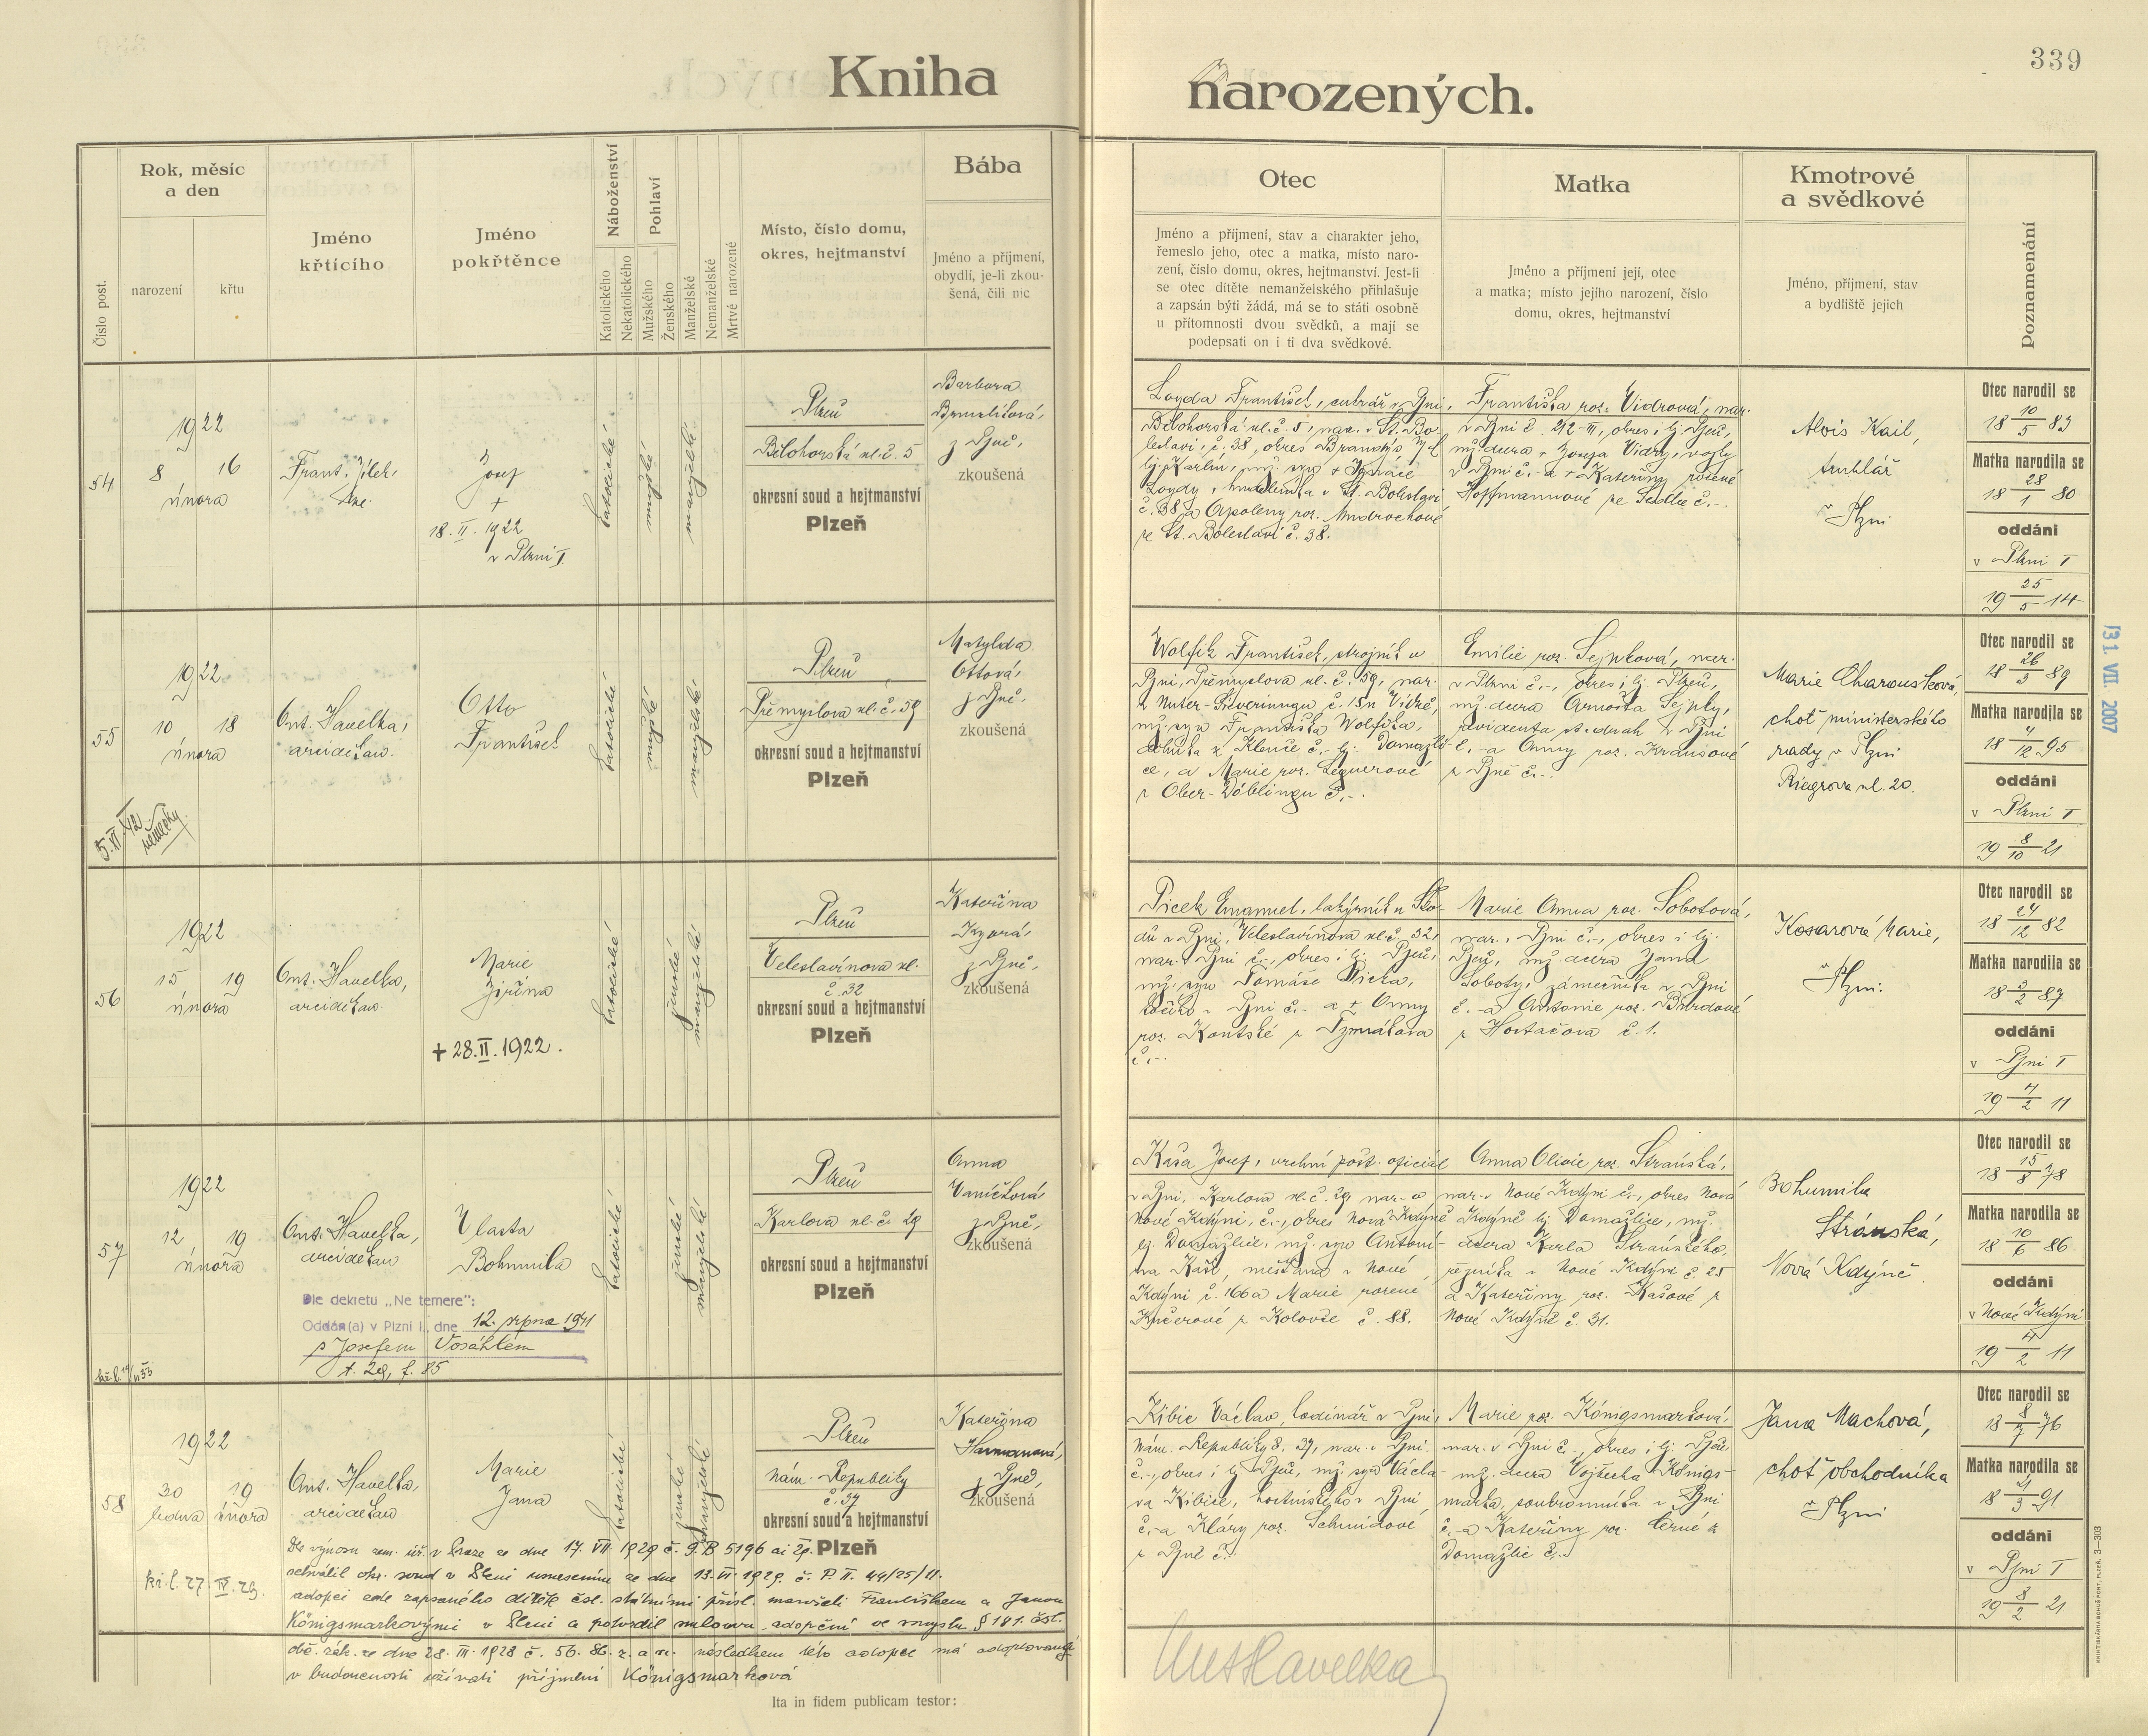 339
Kniha
narozených.
Číslo post.
Rok, měsíc
a den
narození
křtu
Jméno
křtícího
Jméno
pokřtěnce
Náboženství
Katolického
Nekatolického
Pohlaví
Mužského
Ženského
Manželské
Nemanželské
Mrtvě narozené
Místo, číslo domu,
okres, hejtmanství
Bába
Jméno a příjmení,
obydlí, je-li zkou-
šená, čili nic
Otec
Jméno a příjmení, stav a charakter jeho,
řemeslo jeho, otec a matka, místo naro-
zení, číslo domu, okres, hejtmanství. Jest-li
se otec dítěte nemanželského přihlašuje
a zapsán býti žádá, má se to státi osobně
u přítomnosti dvou svědků, a mají se
podepsati on i ti dva svědkové.
Matka
Jméno a příjmení její, otec
a matka; místo jejího narození, číslo
domu, okres, hejtmanství
Kmotrové
a svědkové
Jméno, příjmení, stav
a bydliště jejich
Poznamenání
54
1922
8 16
února
Frant. Jílek,
Josef
+
18. II. 1922
v Plzni I.
katolické
mužské
manželské
Plzeň
Bělohorská ul. č. 5
okresní soud a hejtmanství
Plzeň
Barbora
z Plzně,
zkoušená
Loyda František, cukrář v Plzni,
Bělohorská ul. č. 5, nar. v St. Bo-
leslavi, č. 38, okres Brandýs
hj. Karlín, mž. syn + Ignáce
Loydy, v St. Boleslavi
č. 38 a Apoleny roz.
ze St. Boleslavi č. 38.
Františka roz. Vidrová, nar.
v Plzni č. 212-III, okres i hj. Plzeň,
mž. dcera + Josefa Vidry,
v Plzni č. - a + Kateřiny rozené
Hoffmannové ze Sedlce č. -.
Alois Kail,
truhlář
v Plzni
Otec narodil se
18 10/5 83
Matka narodila se
18 28/1 80
oddáni
v Plzni I
19 25/5 14
55
1922
10 18
února
Ant. Havelka,
arciděkan.
Otto
František
5. XI. 42
německy.
katolické
mužské
manželské
Plzeň
Přemyslova ul. č. 59
okresní soud a hejtmanství
Plzeň
Matylda
Ottová,
z Plzně,
zkoušená
Wolfík František, strojník v
Plzni, Přemyslova ul. č. 59, nar.
v Unter-Sieveringu č. 18 n Vídně,
mž. syn Františka Wolfíka,
z Klenče č. - hj. Domažli-
ce, a Marie roz.
z Ober-Döblingu č. -.
Emilie roz. Sejpková, nar.
v Plzni č. -, okres i hj. Plzeň,
mž. dcera Arnošta Sejpky,
revidenta st. drah v Plzni
č. - a Anny roz. Krausové
z Plzně č. -.
Marie Charousková,
choť ministerského
rady v Plzni
Riegrova ul. 20.
Otec narodil se
18 26/3 89
Matka narodila se
18 4/12 95
oddáni
v Plzni I
19 8/10 21
31. VII. 2007
56
1922
15 19
února
Ant. Havelka,
arciděkan.
Marie
Jiřina
+ 28. II. 1922.
katolické
ženské
manželské
Plzeň
Veleslavínova ul.
č. 32
okresní soud a hejtmanství
Plzeň
Kateřina
z Plzně,
zkoušená
Picek Emanuel, lakýrník u Ško-
dů v Plzni, Veleslavínova ul. č. 32,
nar. v Plzni č. -, okres i hj. Plzeň,
mž. syn Tomáše Picka,
v Plzni č. - a + Anny
roz. Koutské z
č. -.
Marie Anna roz. Sobotová,
nar. v Plzni č. -, okres i hj.
Plzeň, mž. dcera Jana
Soboty, zámečníka v Plzni
č. - a Antonie roz.
z č. 1.
Kosarová Marie,
v Plzni.
Otec narodil se
18 24/12 82
Matka narodila se
18 3/2 87
oddáni
v Plzni I
19 7/2 11
57
1922
12 19
února
Ant. Havelka,
arciděkan
Vlasta
Bohumila
Dle dekretu „Ne temere“:
Oddán(a) v Plzni I., dne 12. srpna 1941
s Josefem Vosáhlem
t. 29, f. 85
katolické
ženské
manželské
Plzeň
Karlova ul. č. 29
okresní soud a hejtmanství
Plzeň
Anna
Vaníčková,
z Plzně,
zkoušená
Kaša Josef, vrchní pošt. oficiál
v Plzni, Karlova ul. č. 29, nar. v
Nové Kdyni, č. -, okres Nová Kdyně
hj. Domažlice, mž. syn Antoní-
na Kaši, měšťana v Nové
Kdyni č. 166 a Marie rozené
Kučerové z Kolovče č. 88.
Anna Olivie roz. Stránská,
nar. v Nové Kdyni č. -, okres Nová
Kdyně hj. Domažlice, mž.
dcera Karla Stránského,
řezníka v Nové Kdyni č. 25
a Kateřiny roz. Kašové z
Nové Kdyně č. 31.
Bohumila
Stránská,
Nová Kdyně
Otec narodil se
18 15/8 78
Matka narodila se
18 10/6 86
oddáni
v Nové Kdyni
19 4/2 11
58
1922
30 19
ledna února
Ant. Havelka,
arciděkan
Marie
Jana
katolické
ženské
manželské
Plzeň
nám. Republiky
č. 37
okresní soud a hejtmanství
Plzeň
Kateřina
z Plzně,
zkoušená
kř. l. 27. IV. 29.
Dle výnosu zem. úř. v Praze ze dne 17. VII. 1929 č. 9.B 5196 ai 29.
schválil okr. soud v Plzni usnesením ze dne 13. VI. 1929. č. P. II. 44/25/11.
adopci zde zapsaného dítěte čsl. státními přísl. manželi Františkem a Janou
Königsmarkovými v Plzni a potvrdil smlouvu adopční ve smyslu § 181. čsl.
obč. zák. ze dne 28. III. 1928 č. 56. Sb. z. a n. následkem této adopce má adoptovaná
v budoucnosti užívati příjmení Königsmarková
Kibic Václav, hodinář v Plzni,
nám. Republiky č. 37, nar. v Plzni
č. -, okres i hj. Plzeň, mž. syn Václa-
va Kibice, hostinského v Plzni
č. - a Kláry roz. Schmidové
z Plzně č. -.
Marie roz. Königsmarková,
nar. v Plzni č. -, okres i hj. Plzeň
mž. dcera Vojtěcha Königs-
marka, soukromníka v Plzni
č. - a Kateřiny roz. Černé z
Domažlic č. -.
Jana Machová,
choť obchodníka
v Plzni
Otec narodil se
18 8/7 76
Matka narodila se
18 21/3 91
oddáni
v Plzni I
19 8/2 21
Ita in fidem publicam testor:
Ant Havelka